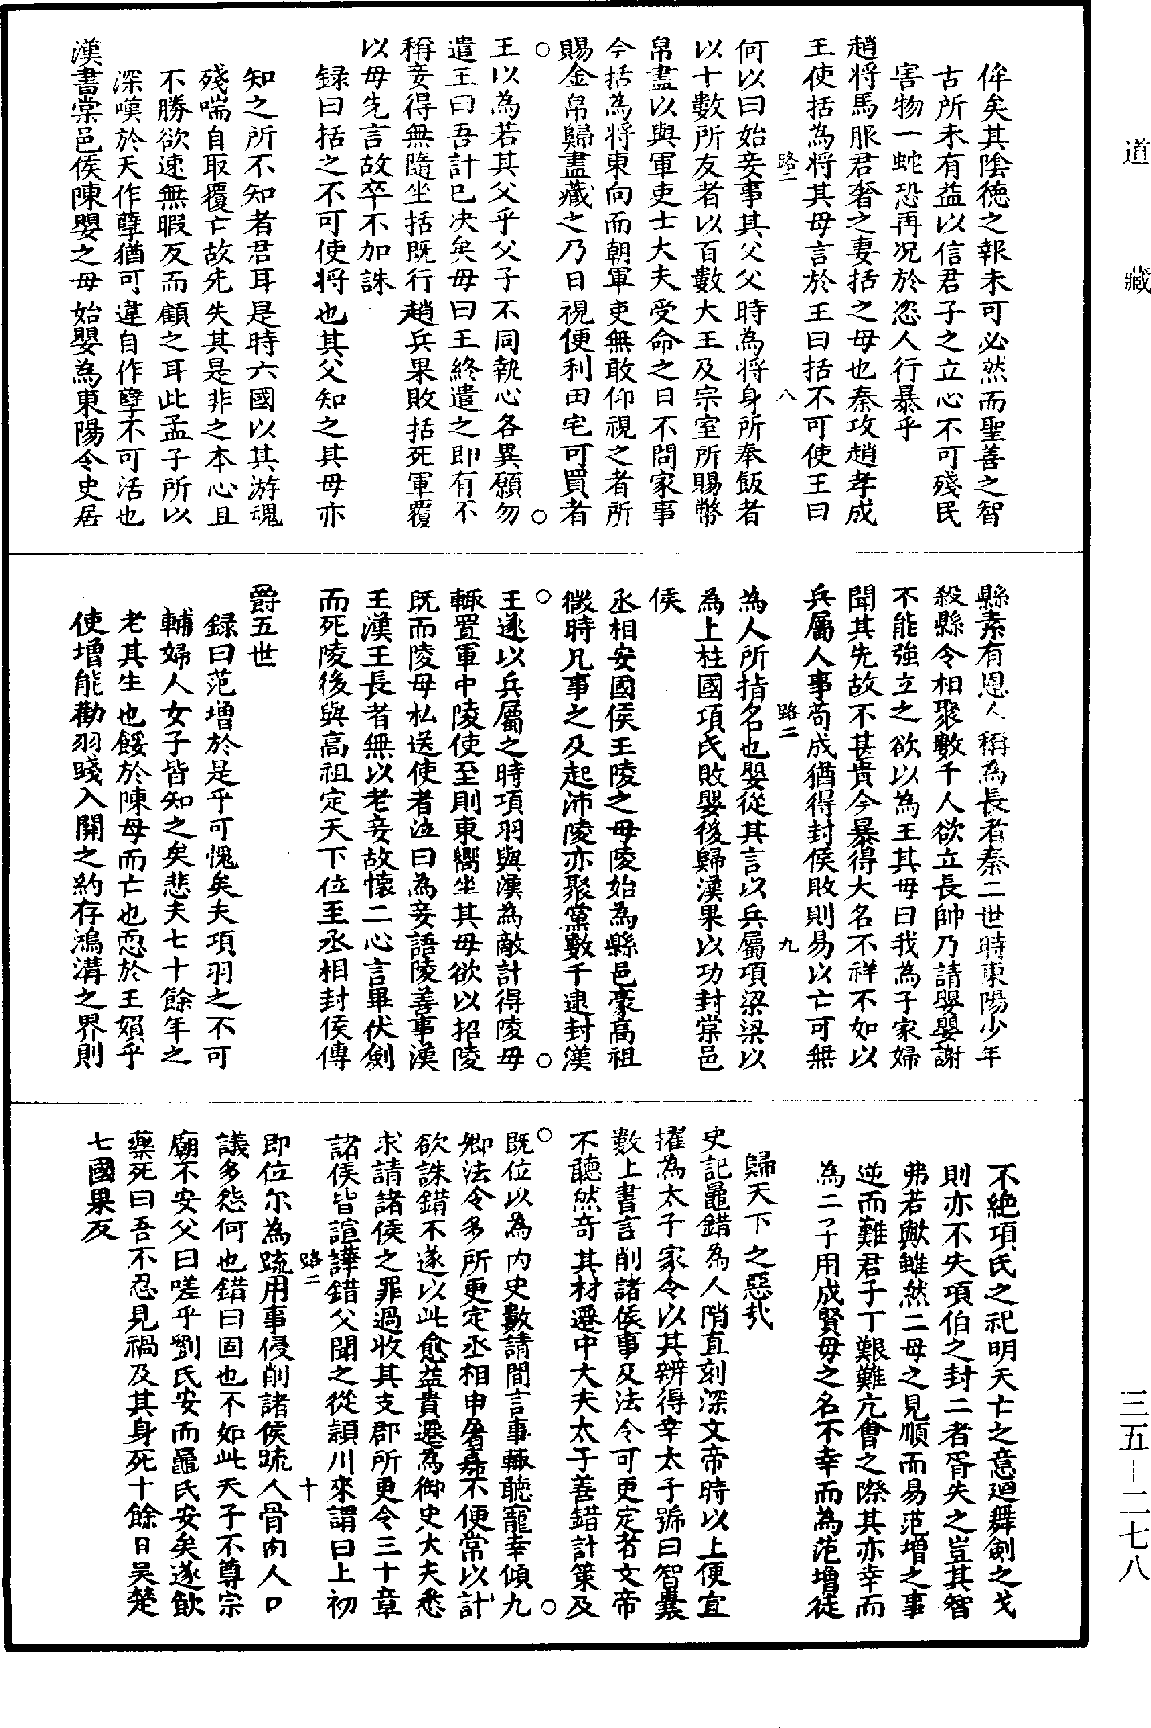 道藏
侔矣其陰德之報未可必然而聖善之智
古所未有益以信君子之立心不可殘民
害物一蛇恐再況於忽人行暴乎
趙將馬服君奢之妻括之母也秦攻趙孝成
王使括為將其母言於王曰括不可使王曰
路二 八
何以曰始妾事其父父時為將身所奉飯者
以十數所友者以百數大王及宗室所賜幣
帛盡以與軍吏士大夫受命之日不問家事
今括為將東向而朝軍吏無敢仰視之者所
賜金帛歸盡藏之乃日視便利田宅可買者
王以為若其父乎父子不同執心各異願勿
遣王曰吾計已决矣母曰王終遣之即有不
稱妾得無隨坐括既行趙兵果敗括死軍覆
以母先言故卒不加誅
録曰括之不可使將也其父知之其母亦
知之所不知者君耳是時六國以其游魂
殘喘自取覆亡故先失其是非之本心且
不勝欲速無暇反而顧之耳此孟子所以
深嘆於天作孽猶可違自作孽不可活也
漢書棠邑侯陳嬰之母始嬰為東陽令史居
縣素有恩人稱為長者秦二世時東陽少年
殺縣令相聚數千人欲立長帥乃請嬰嬰謝
不能強立之欲以為王其母曰我為子家婦
聞其先故不甚貴今暴得大名不祥不如以
兵屬人事苟成猶得封侯敗則易以亡可無
路二 九
為人所指名也嬰從其言以兵屬項梁梁以
為上柱國項氏敗嬰後歸漢果以功封棠邑
侯
丞相安國侯王陵之母陵始為縣邑豪高祖
微時兄事之及起沛陵亦聚黨數千逮封漢
王遂以兵屬之時項羽與漢為敵計得陵母
輒置軍中陵使至則東嚮坐其母欲以招陵
既而陵母私送使者泣曰為妾語陵善事漢
王漢王長者無以老妾故懷二心言畢伏劍
而死陵後與高祖定天下位至丞相封侯傳
爵五世
録曰范增於是乎可愧矣夫項羽之不可
輔婦人女子皆知之矣悲夫七十餘年之
老其生也餒於陳母而亡也恧於王媪乎
使增能勸羽踐入關之約存鴻溝之界則
不絶項氏之祀明天亡之意迴舞劍之戈
則亦不失項伯之封二者胥失之豈其智
弗若歟雖然二母之見順而易范增之事
逆而難君子丁艱難亢會之際其亦幸而
為二子用成賢母之名不幸而為范增徒
歸天下之惡㦲
史記鼂錯為人陗直刻深文帝時以上便宜
擢為太子家令以其辨得幸太子號曰智囊
數上書言削諸侯事及法令可更定者文帝
不聽然奇其材遷中大夫太子善錯計策及
既位以為内史數請間言事輒聽寵幸傾九
卿法令多所更定丞相申屠嘉不便常以計
欲誅錯不遂以此愈益貴遷為御史大夫悉
求請諸侯之罪過收其支郡所更令三十章
諸侯皆諠譁錯父聞之從頴川來謂曰上初
路二 十
即位尔為䟽用事侵削諸侯䟽人骨肉人口
議多怨何也錯曰固也不如此天子不尊宗
廟不安父曰嗟乎劉氏安而鼂氏安矣遂飲
藥死曰吾不忍見禍及其身死十餘日吳楚
七國果反
三五—二七八